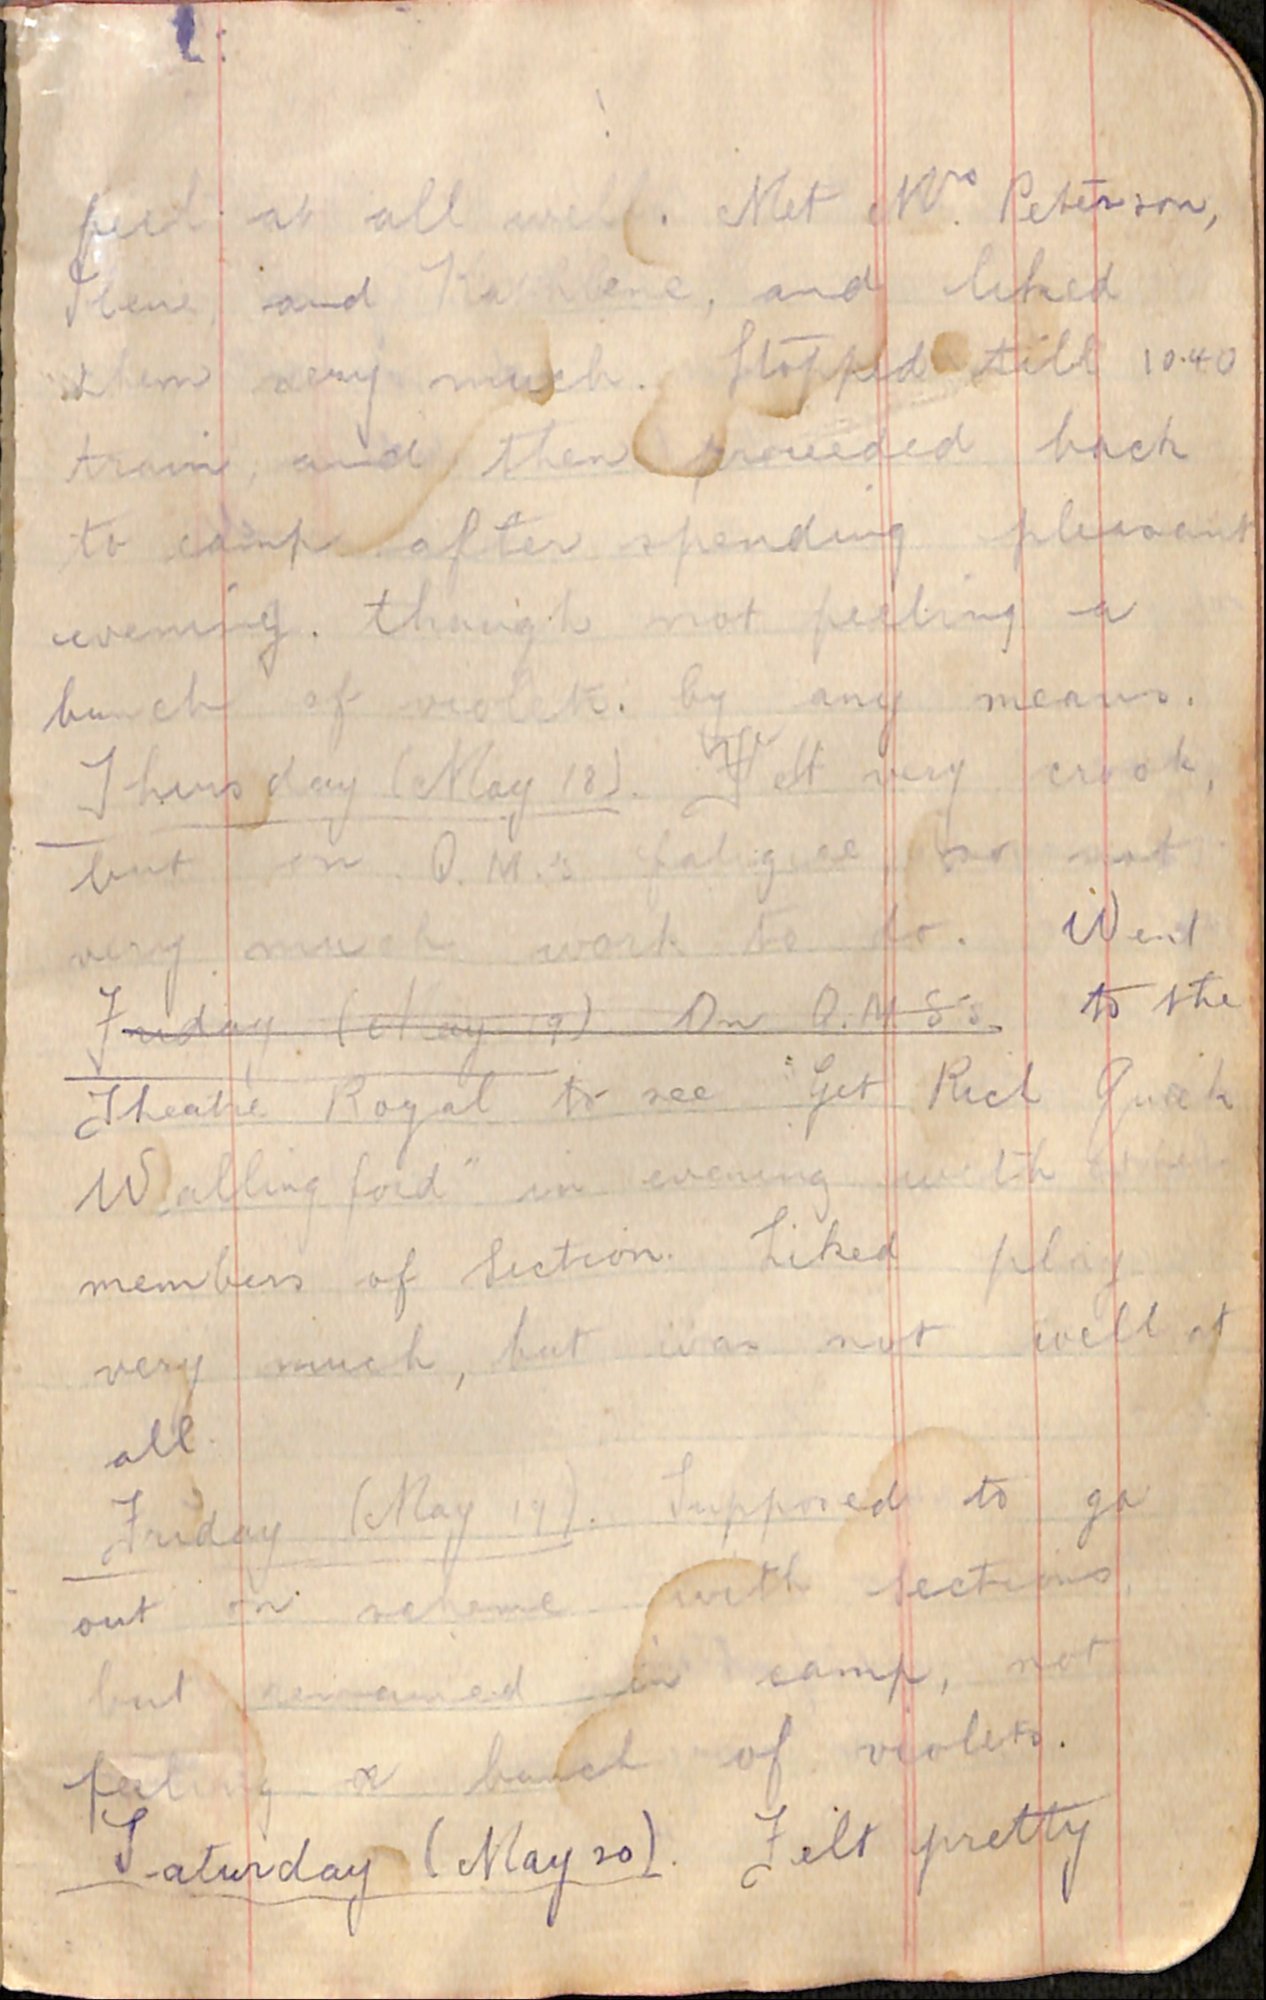 feel at all well. Met Mrs. Peterson,
Ilene and Kathlene, and liked
them very much. Stopped till 10.40
train, and then proceeded back
to camp after spending pleasant
evening. though not feeling a
bunch of violets. by any means.
Thursday (May 18). Felt very crook,
but on Q.M.'s fatigue so not
very much work to do. Went
Friday (May 19) On Q.M.S's to the
Theatre Royal to see "Get Rich Quick
Wallingford" in evening with other
members of Section. Liked play
very much, but was not well at
all.
Friday (May 19). Supposed to go
out on scheme with sections,
but remained in camp, not
feeling a bunch of violets.
Saturday (May 20). Felt pretty